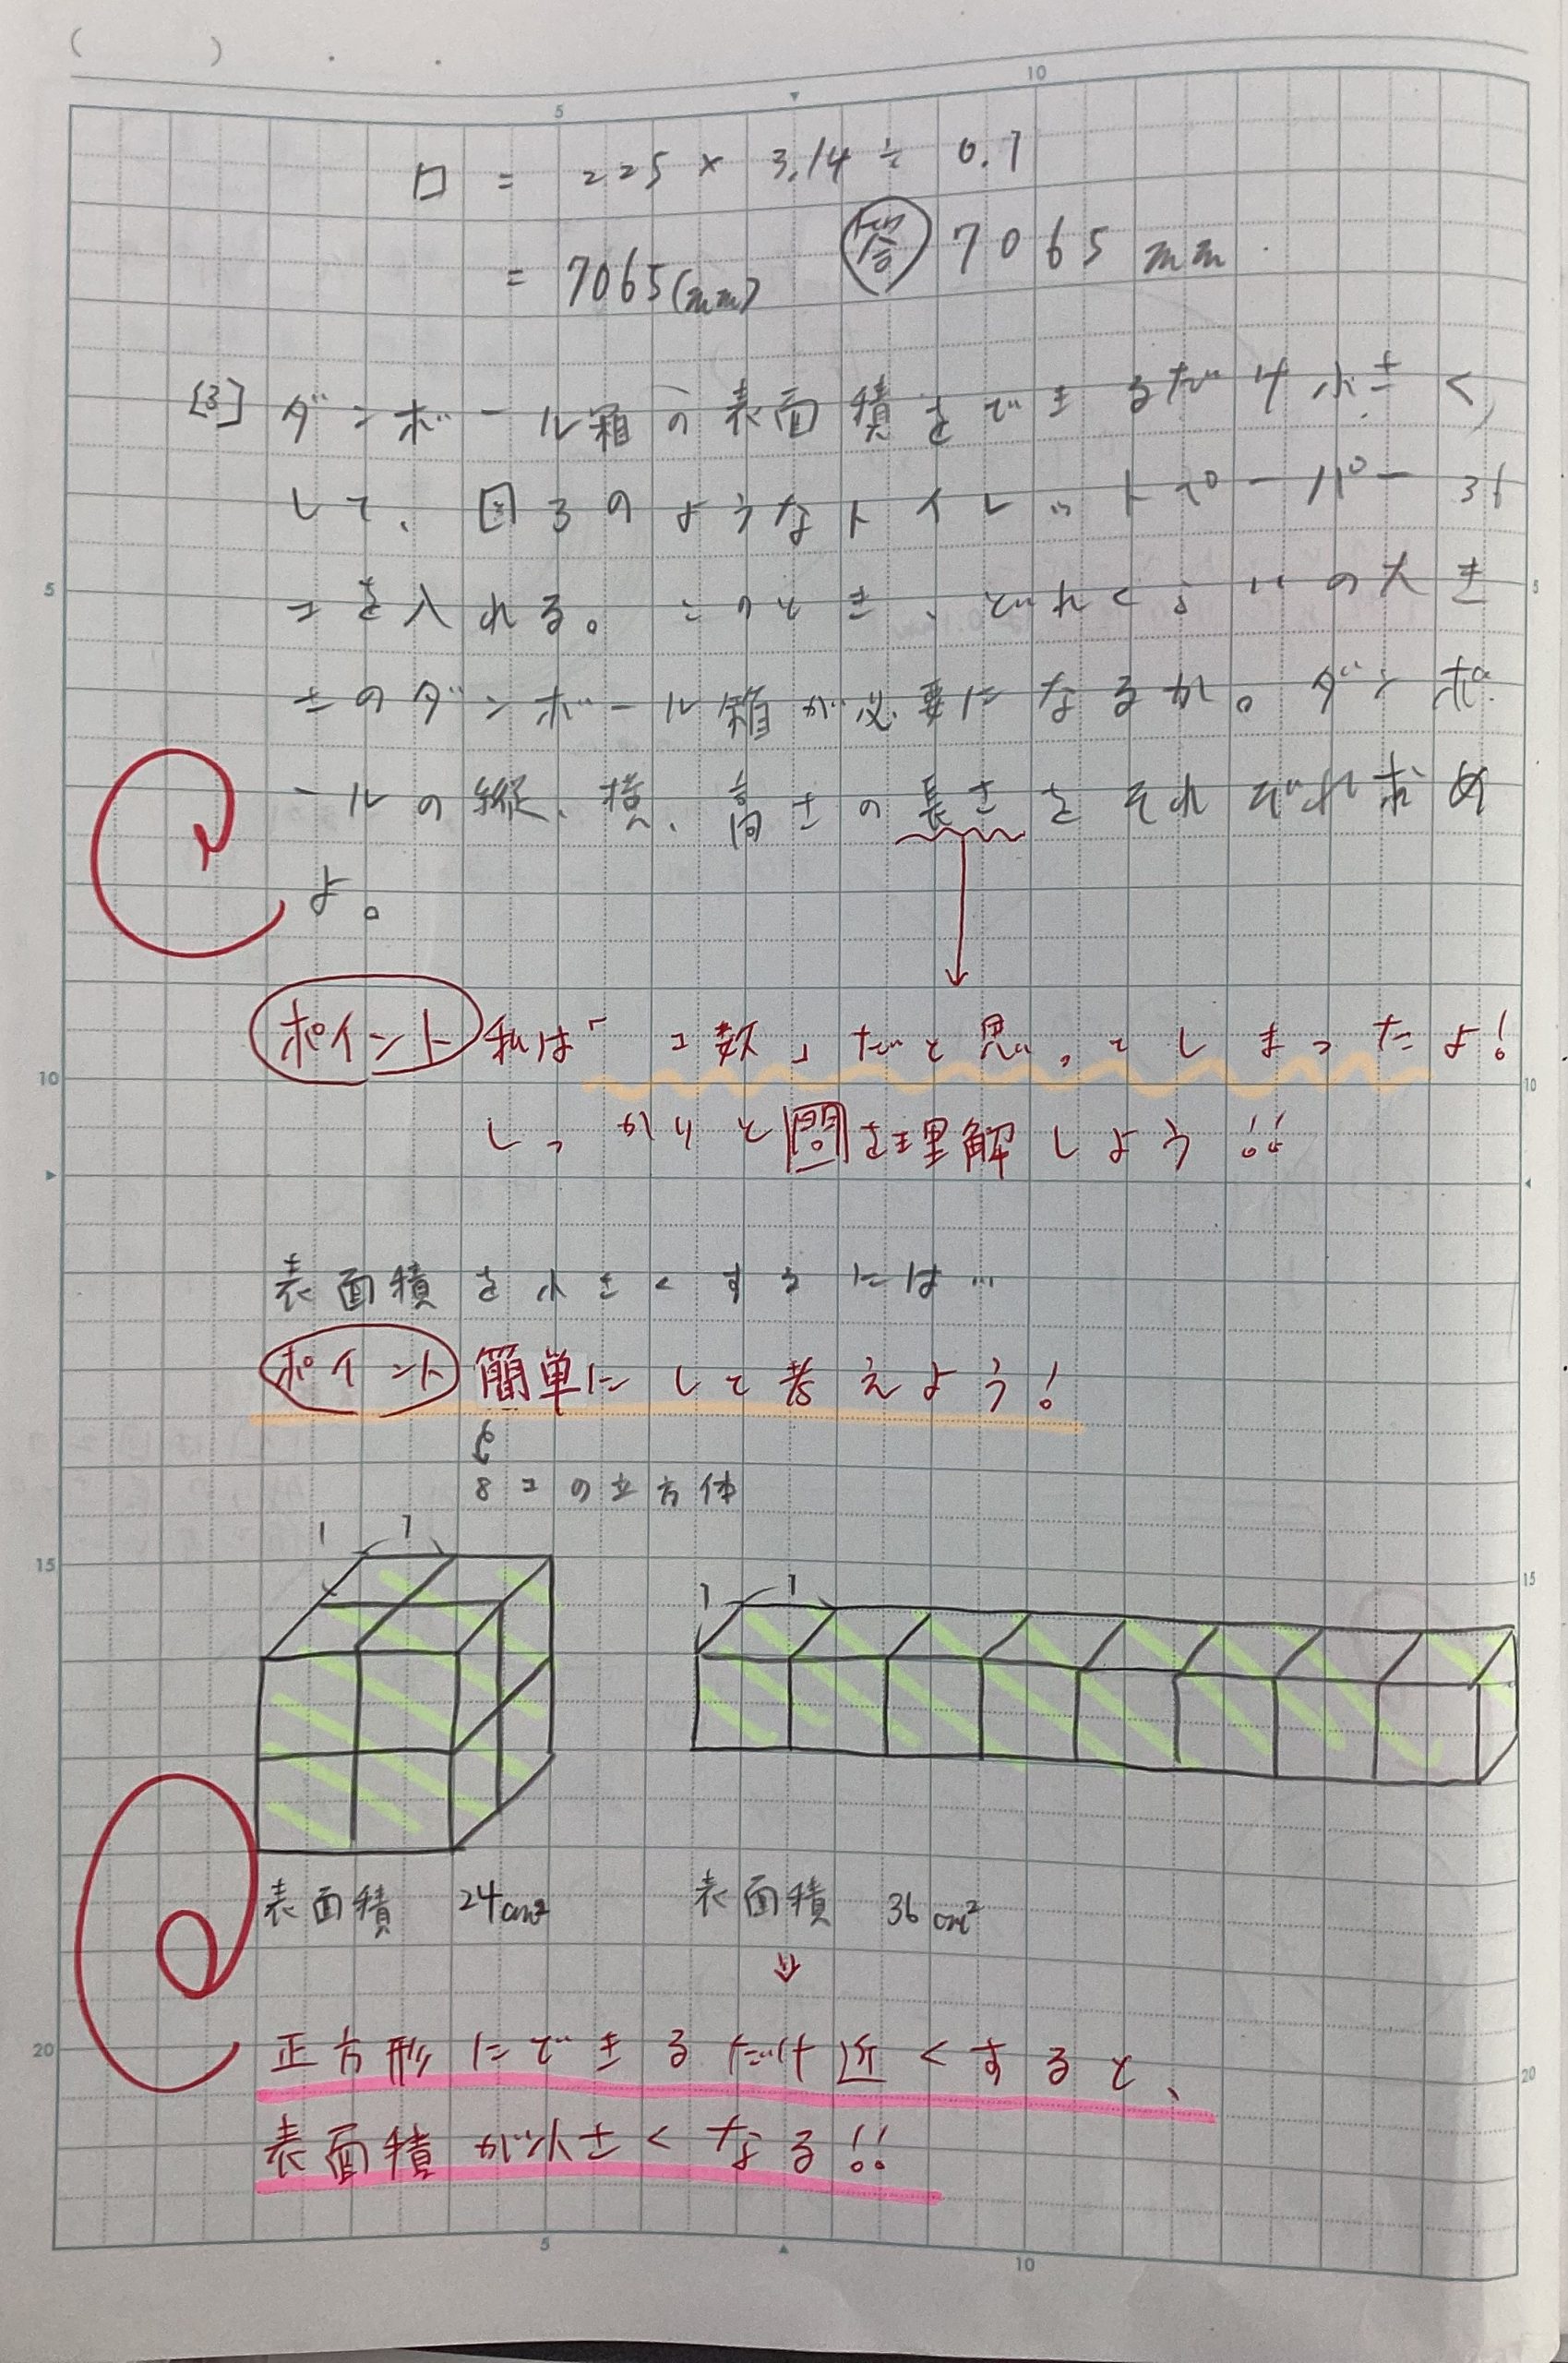 ( )
5 10
□ = 225 × 3.14 ÷ 0.1
= 7065(mm) 答 7065 mm
[3] ダンボール箱の表面積をできるだけ小さく
して、図3のようなトイレットペーパー 36
コを入れる。このとき、どれくらいの大き
さのダンボール箱が必要になるか。ダンボ
ールの縦、横、高さの長さをそれぞれ求め
よ。
ポイント 私は「コ数」だと思ってしまったよ!
しっかりと問を理解しよう!!
表面積を小さくするには…
ポイント 簡単にして考えよう!
8コの立方体
1 1
1 1
表面積 24cm² 表面積 36cm²
正方形にできるだけ近くすると、
表面積が小さくなる!!
5 10
5 5
10 10
15 15
20 20